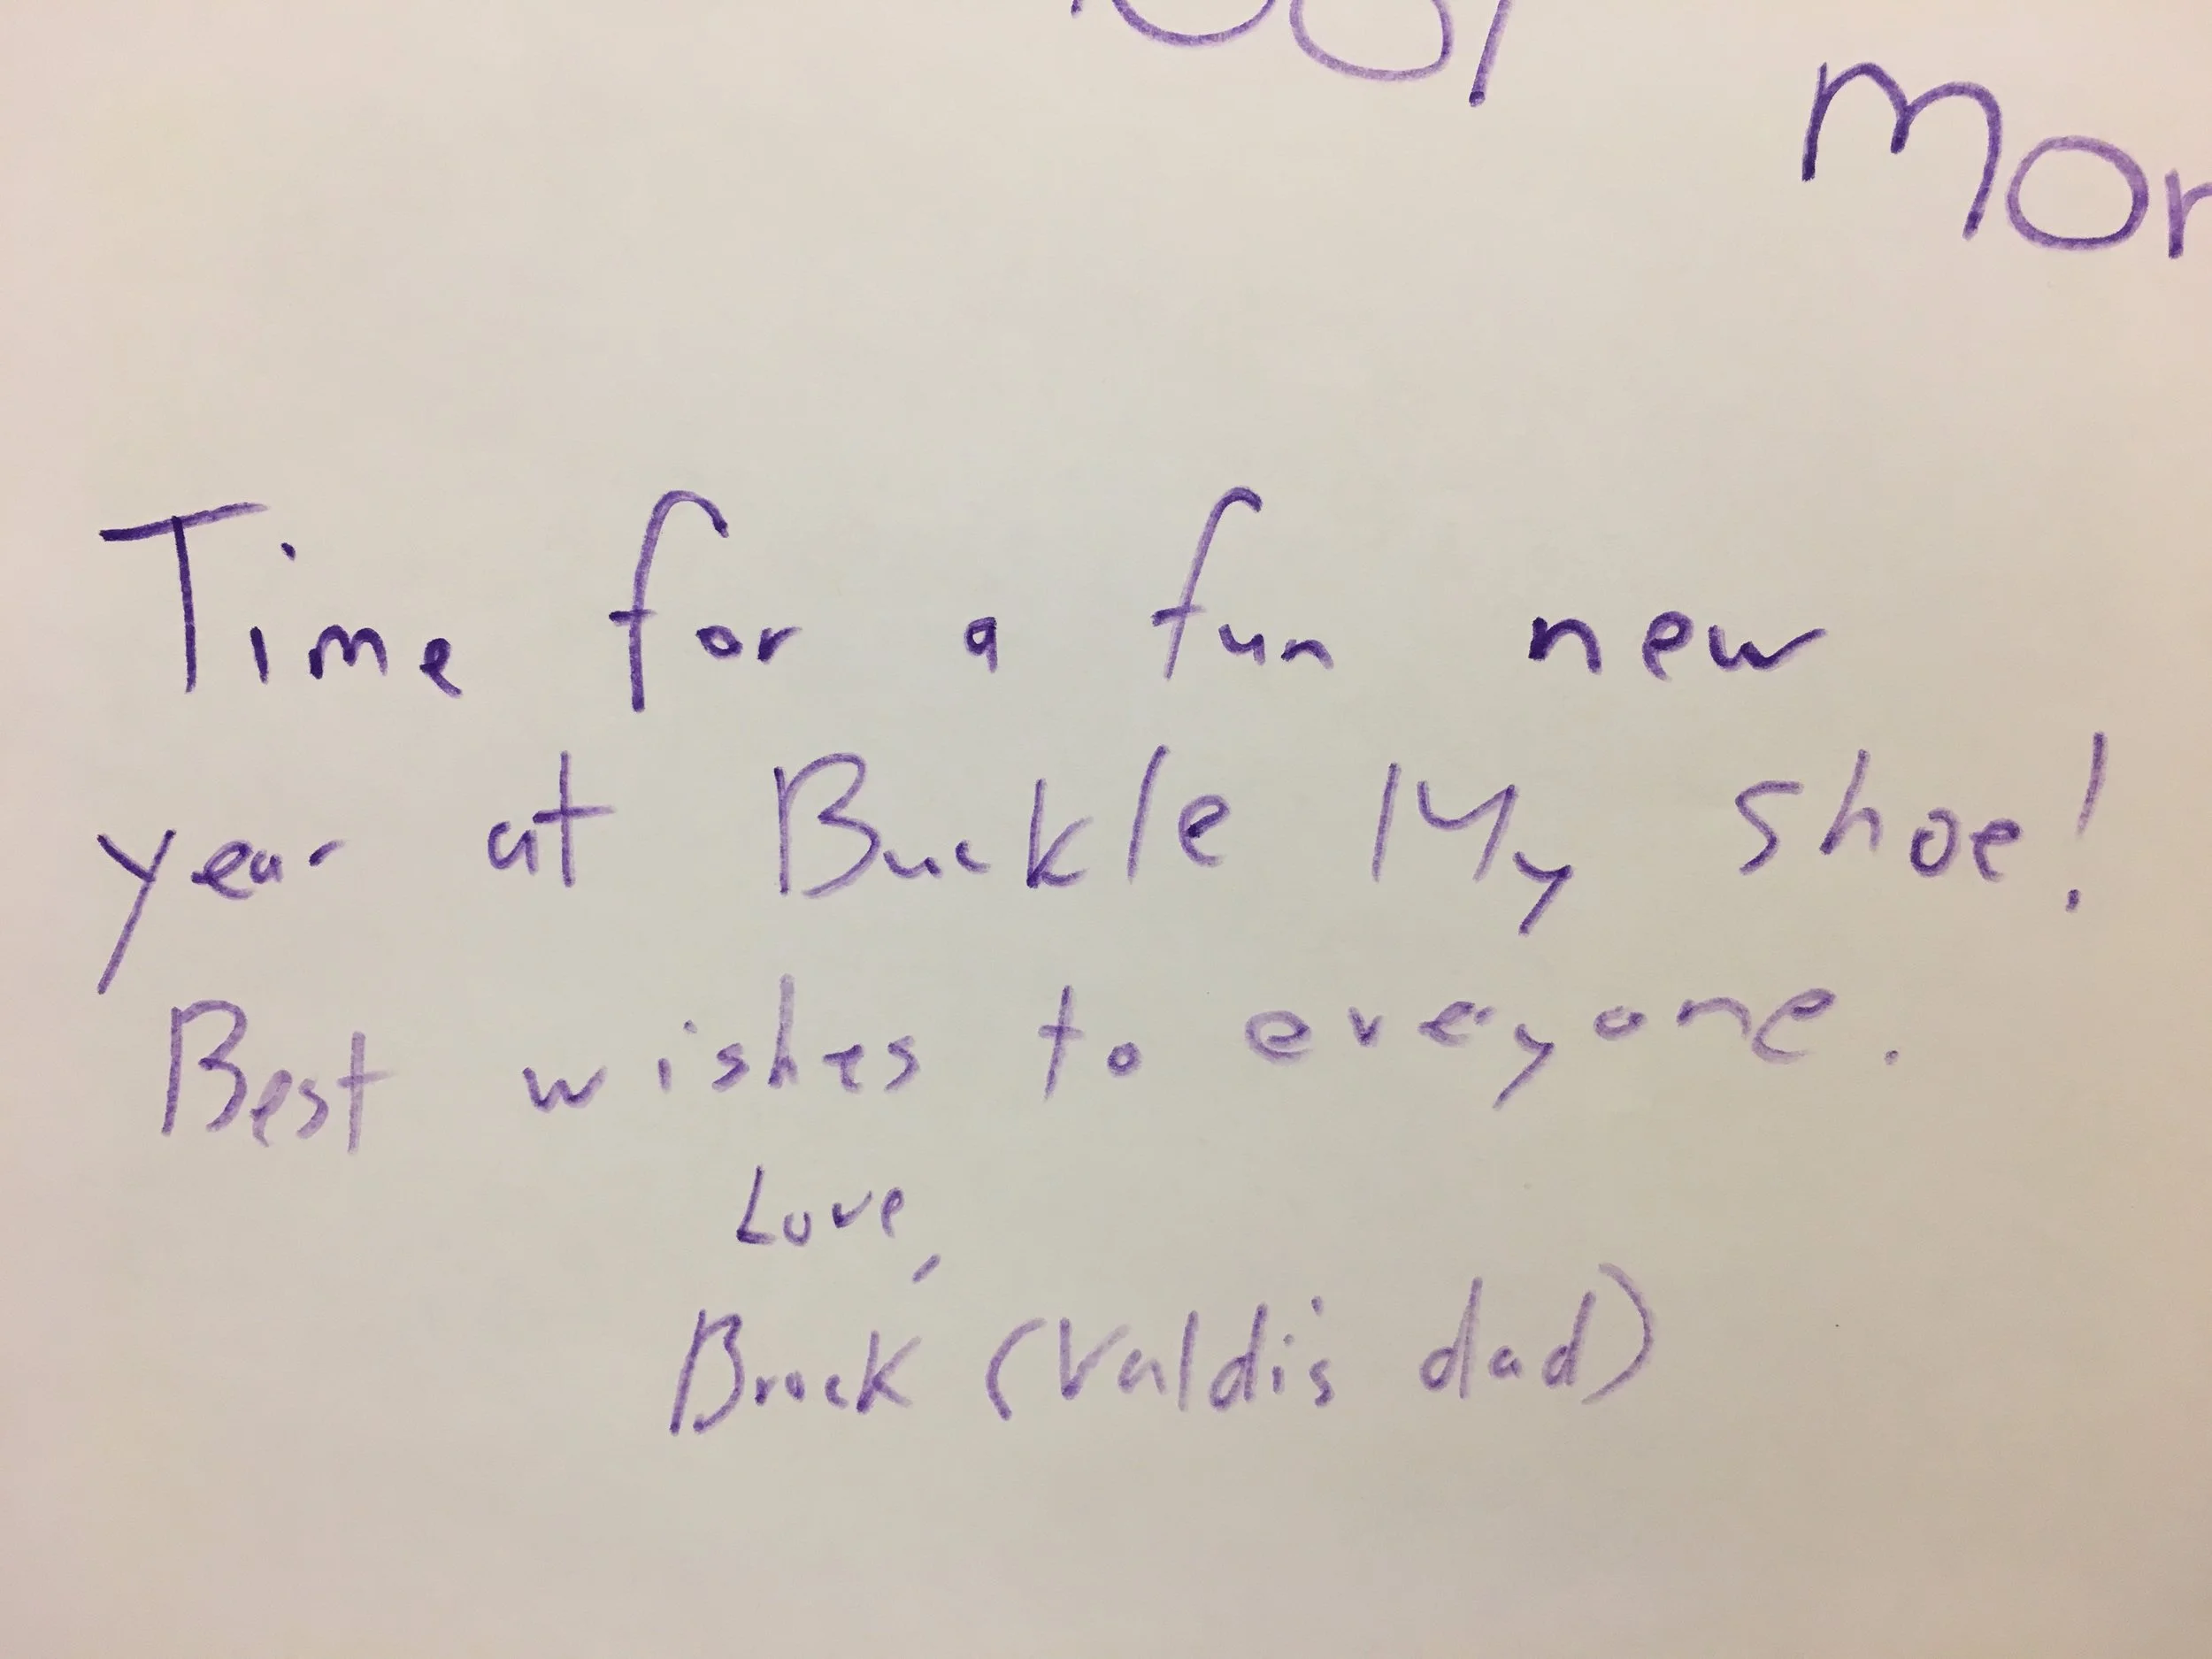 Mor
Time for a fun new
year at Buckle My Shoe!
Best wishes to everyone.
Love,
Brock (Valdi's dad)